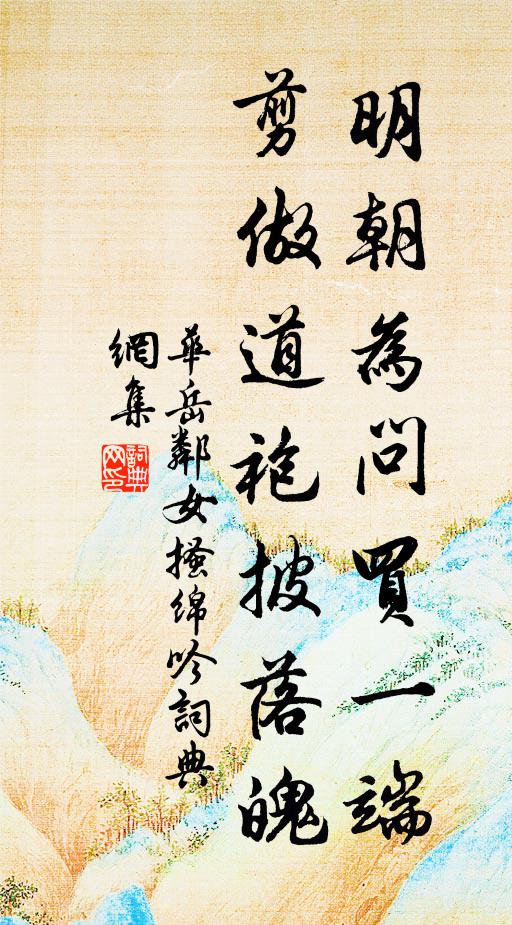 明朝為问買一端
剪做道袍披落魄
華岳鄰女搔绵吟詞典
網集
詞典
网印